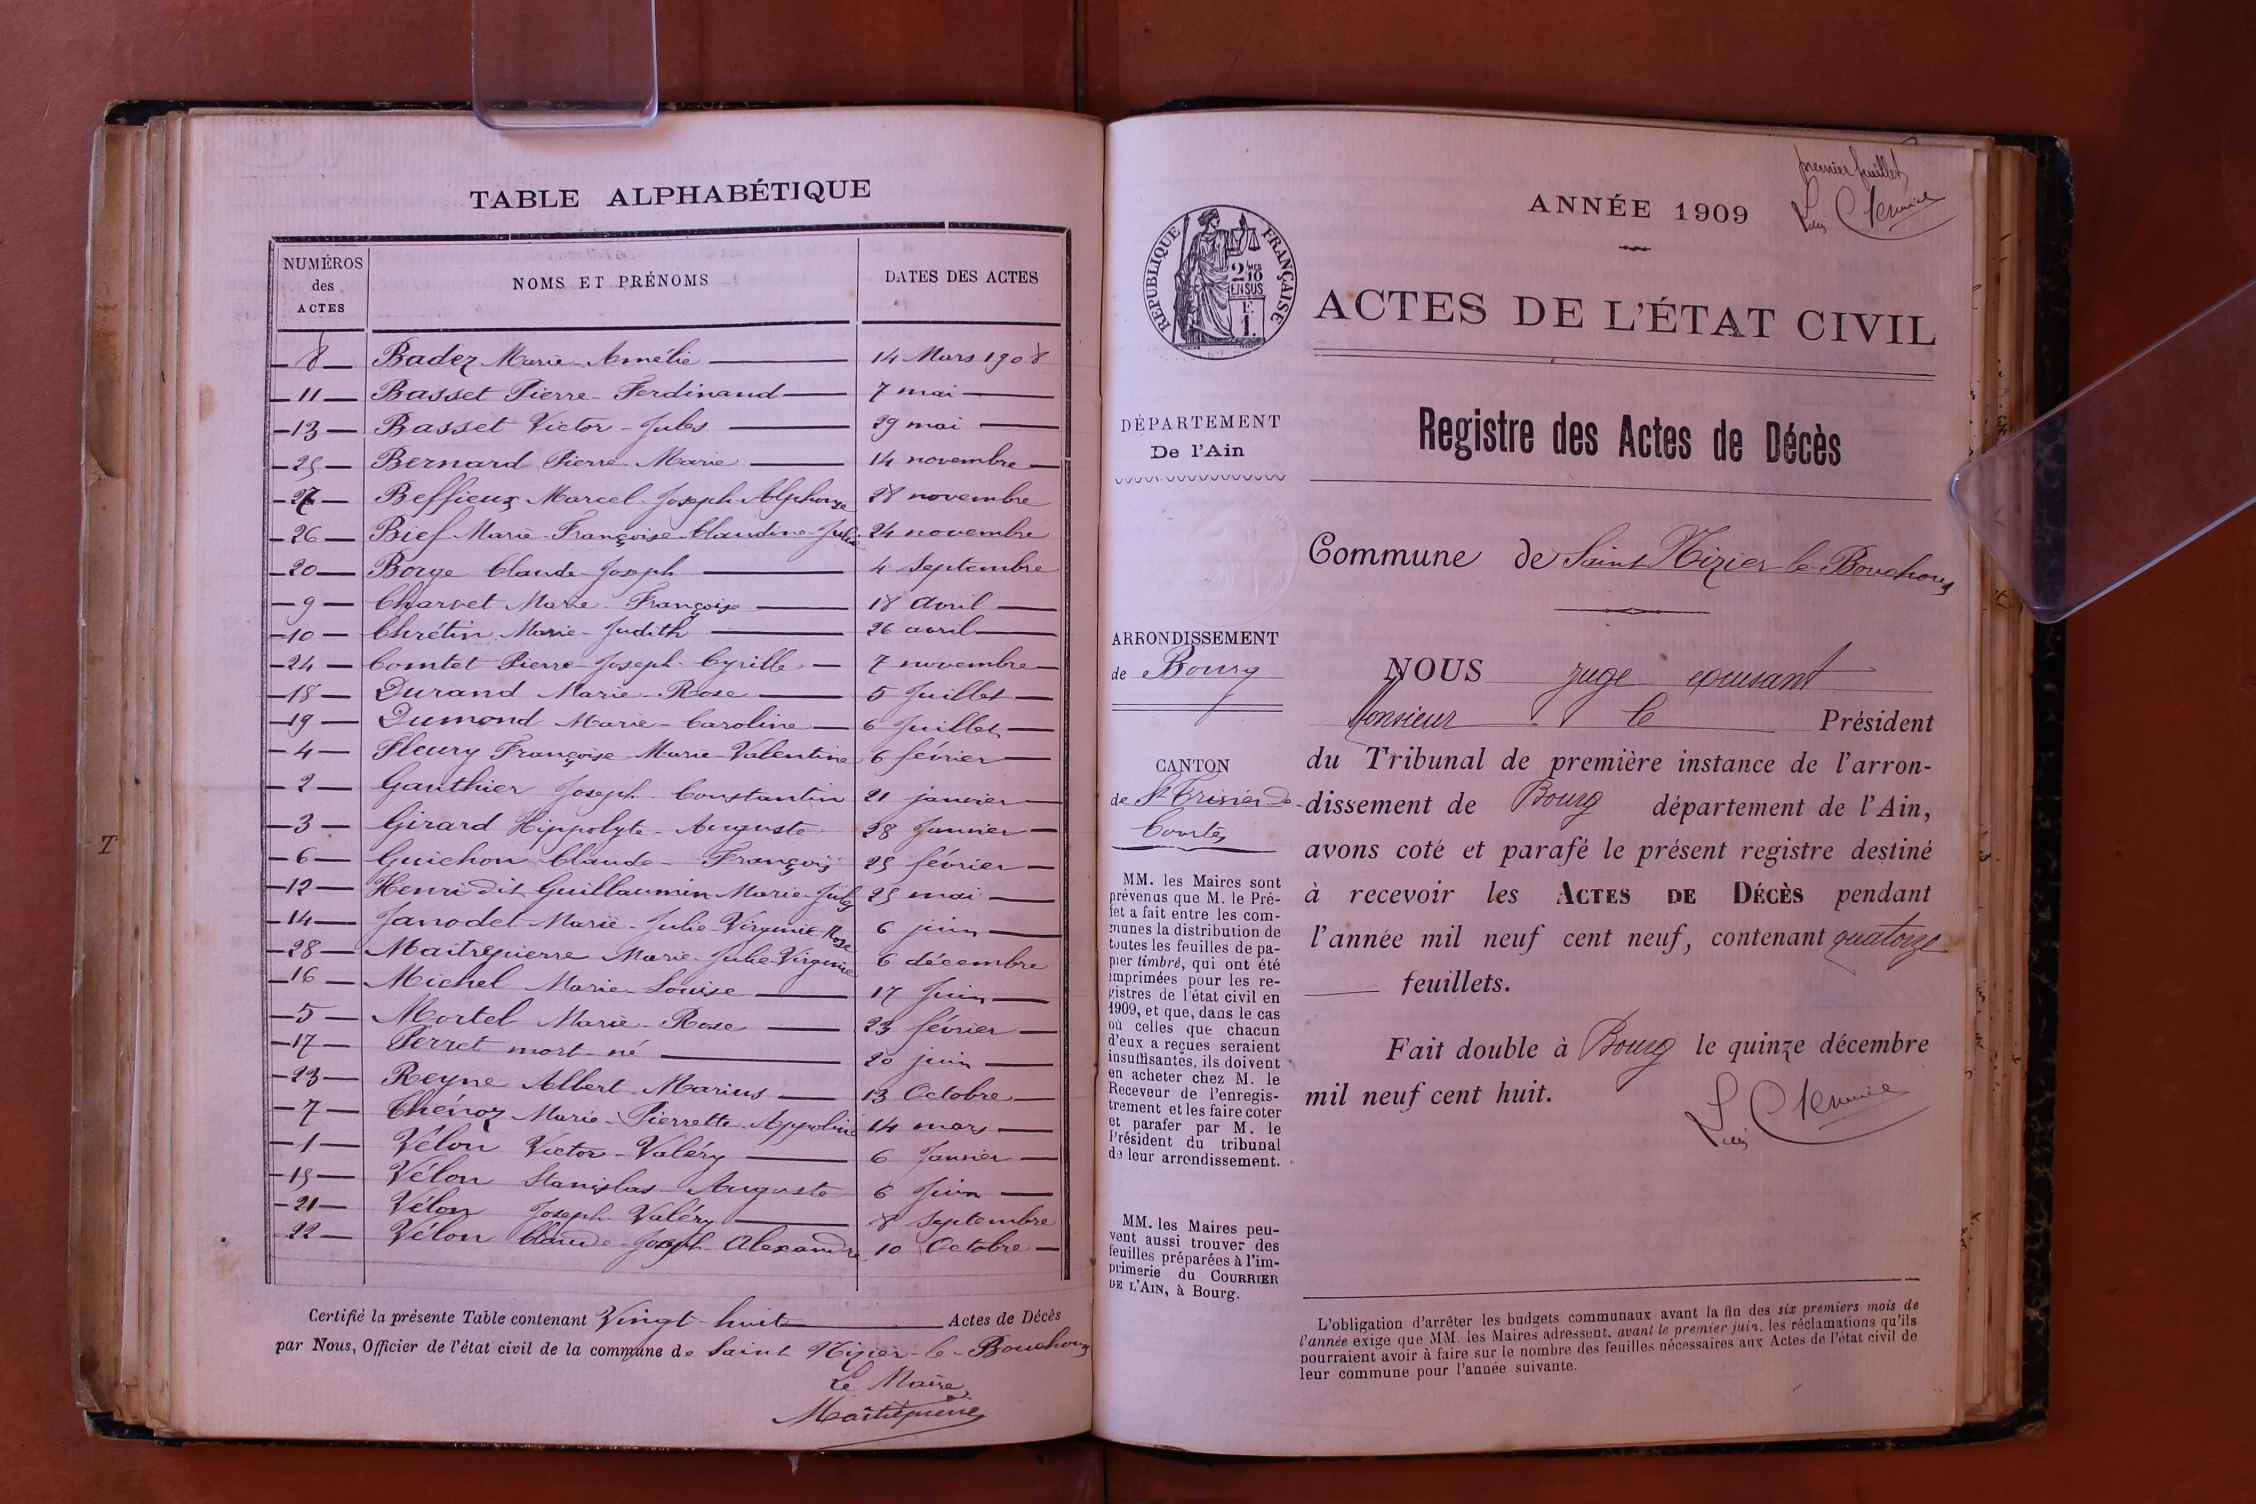 TABLE ALPHABÉTIQUE
NUMÉROS des ACTES NOMS ET PRÉNOMS DATES DES ACTES
8 Badez Marie-Amélie 14 Mars 1908
11 Basset Pierre-Ferdinand 7 mai
13 Basset Victor-Jules 29 mai
25 Bernard Pierre-Marie 14 novembre
27 Beffieux Marcel-Joseph-Alphonse 28 novembre
26 Bief Marie-Françoise-Claudine-Julie 24 novembre
20 Borge Claude-Joseph 4 Septembre
9 Charvet Marie-Françoise 18 avril
10 Chrétin Marie-Judith 26 avril
24 Comtet Pierre-Joseph-Cyrille 7 novembre
18 Durand Marie-Rose 5 Juillet
19 Dumond Marie-Caroline 6 Juillet
4 Fleury Françoise-Marie-Valentine 6 février
2 Gauthier Joseph-Constantin 21 janvier
3 Girard Hippolyte-Auguste 28 Janvier
6 Guichon Claude-François 25 février
12 Henri dit Guillaumin Marie-Jules 25 mai
14 Janodet Marie-Julie-Virginie Rose 6 juin
28 Maitrepierre Marie-Julie-Virginie 6 décembre
16 Michel Marie-Louise 17 Juin
5 Mortel Marie-Rose 23 février
17 Perret mort-né 20 juin
23 Reyne Albert-Marius 13 Octobre
7 Thénoz Marie-Pierrette-Appoline 14 mars
1 Vélon Victor-Valéry 6 Janvier
15 Vélon Stanislas-Auguste 6 Juin
21 Vélon Joseph-Valéry 8 Septembre
22 Vélon Claude-Joseph-Alexandre 10 Octobre
Certifié la présente Table contenant Vingt-huit Actes de Décès
par Nous, Officier de l'état civil de la commune de Saint Nizier-le-Bouchoux
Le Maire,
Maitrepierre
T
premier feuillet
ANNÉE 1909
RÉPUBLIQUE FRANÇAISE
2/10 EN SUS
1 F.
ACTES DE L'ÉTAT CIVIL
Registre des Actes de Décès
DÉPARTEMENT
De l'Ain
Commune de Saint Nizier-le-Bouchoux
ARRONDISSEMENT
de Bourg
CANTON
de St Trivier de
Courtes
MM. les Maires sont
prévenus que M. le Pré-
fet a fait entre les com-
munes la distribution de
toutes les feuilles de pa-
pier timbré, qui ont été
imprimées pour les re-
gistres de l'état civil en
1909, et que, dans le cas
où celles que chacun
d'eux a reçues seraient
insuffisantes, ils doivent
en acheter chez M. le
Receveur de l'enregis-
trement et les faire coter
et parafer par M. le
Président du tribunal
de leur arrondissement.
MM. les Maires peu-
vent aussi trouver des
feuilles préparées à l'im-
primerie du COURRIER
DE L'AIN, à Bourg.
NOUS juge excusant
Monsieur le Président
du Tribunal de première instance de l'arron-
dissement de Bourg département de l'Ain,
avons coté et parafé le présent registre destiné
à recevoir les ACTES DE DÉCÈS pendant
l'année mil neuf cent neuf, contenant quatorze
feuillets.
Fait double à Bourg le quinze décembre
mil neuf cent huit.
L'obligation d'arrêter les budgets communaux avant la fin des six premiers mois de
l'année exige que MM. les Maires adressent, avant le premier juin, les réclamations qu'ils
pourraient avoir à faire sur le nombre des feuilles nécessaires aux Actes de l'état civil de
leur commune pour l'année suivante.